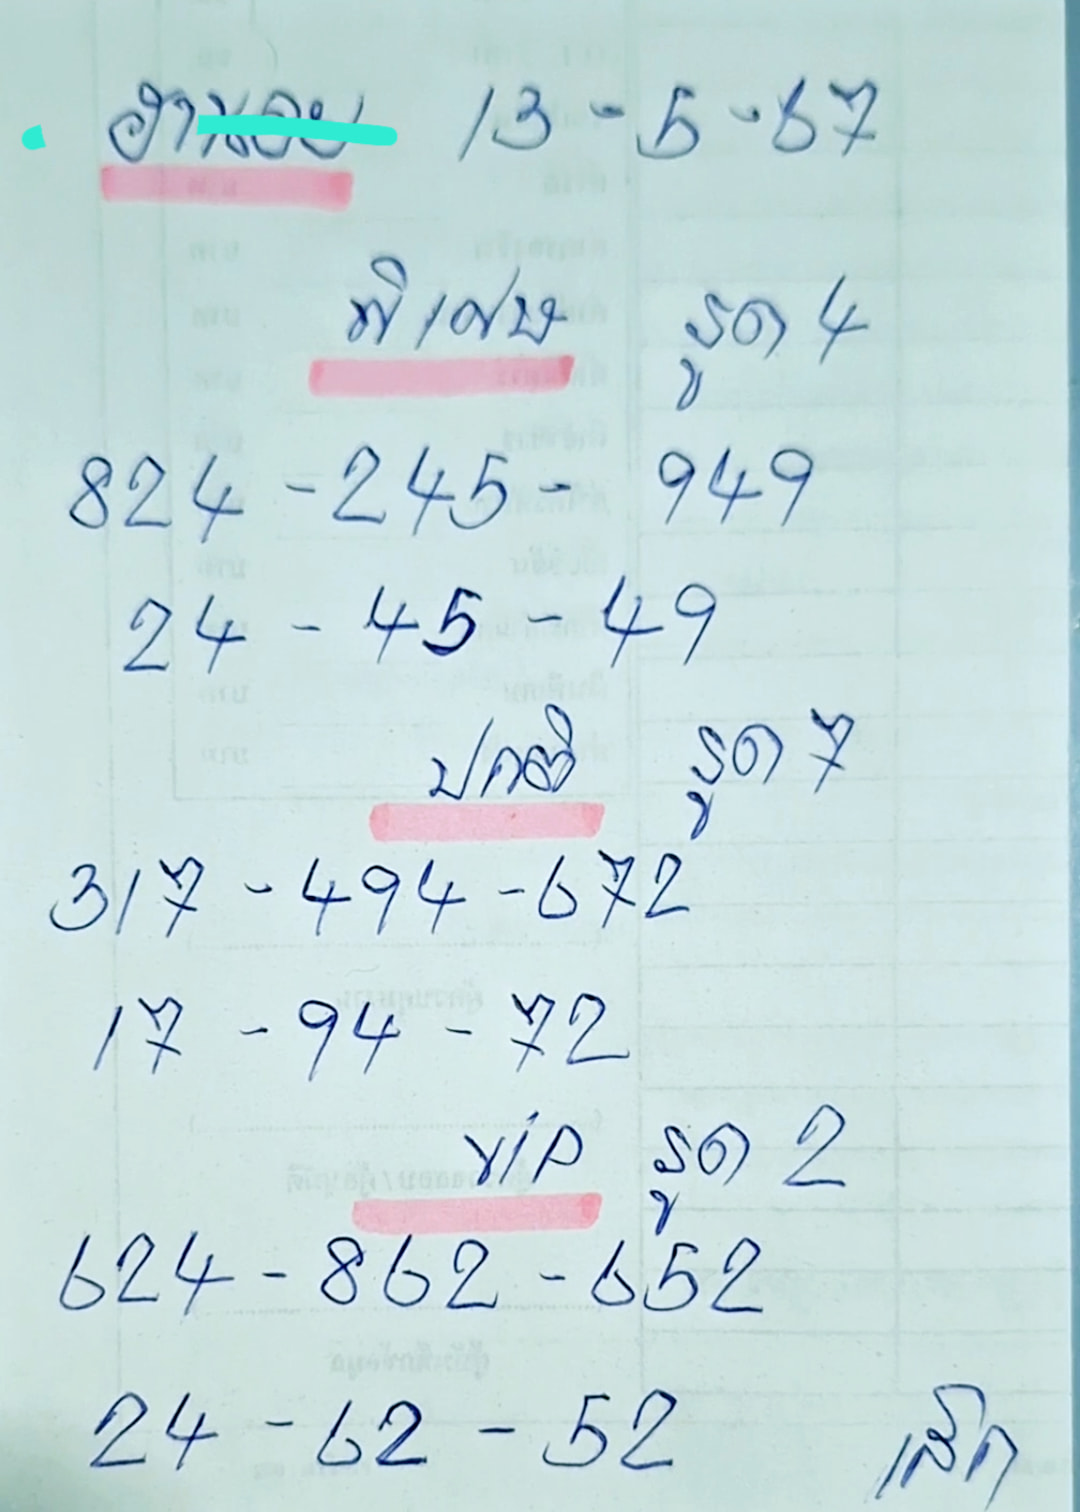 ฮานอย 13-5-67
พิเศษ รูด 4
824-245-949
24-45-49
ปกติ รูด 7
317-494-672
17-94-72
vip รูด 2
624-862-652
24-62-52